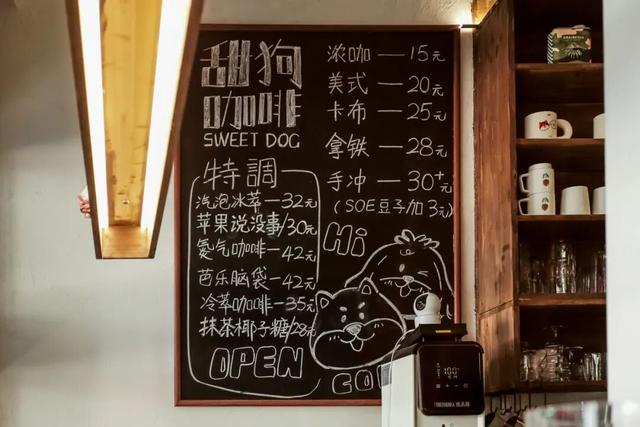 甜狗
咖啡
SWEET DOG
特調
汽泡冰萃—32元
苹果说没事/30元
氮气咖啡—42元
芭乐脑袋—42元
冷萃咖啡—35元
抹茶椰子糖/28元
OPEN
浓咖—15元
美式—20元
卡布—25元
拿铁—28元
手冲—30+元
(SOE豆子加3元)
Hi
COF
100